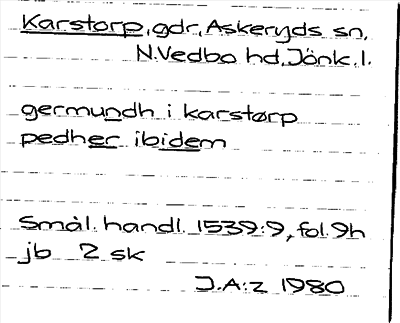 Karstorp, gdr, Askeryds sn,
N.Vedbo hd, Jönk. l.
germundh i karstørp
pedher ibidem
Smål. handl. 1539:9, fol. 9h
jb 2 sk
J.A:z 1980